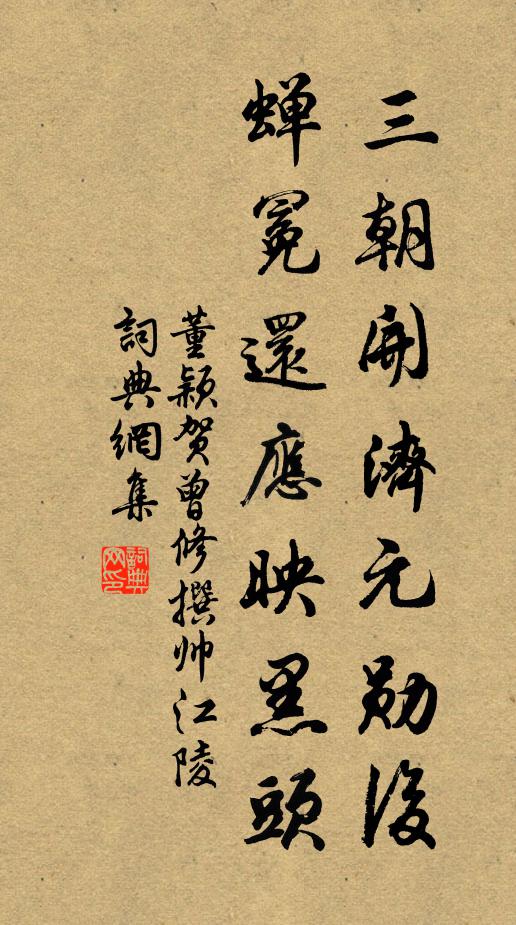 三朝開濟元勋後
蝉冕還應映黑頭
董颖贺曾修撰帅江陵
詞典網集
詞典网印